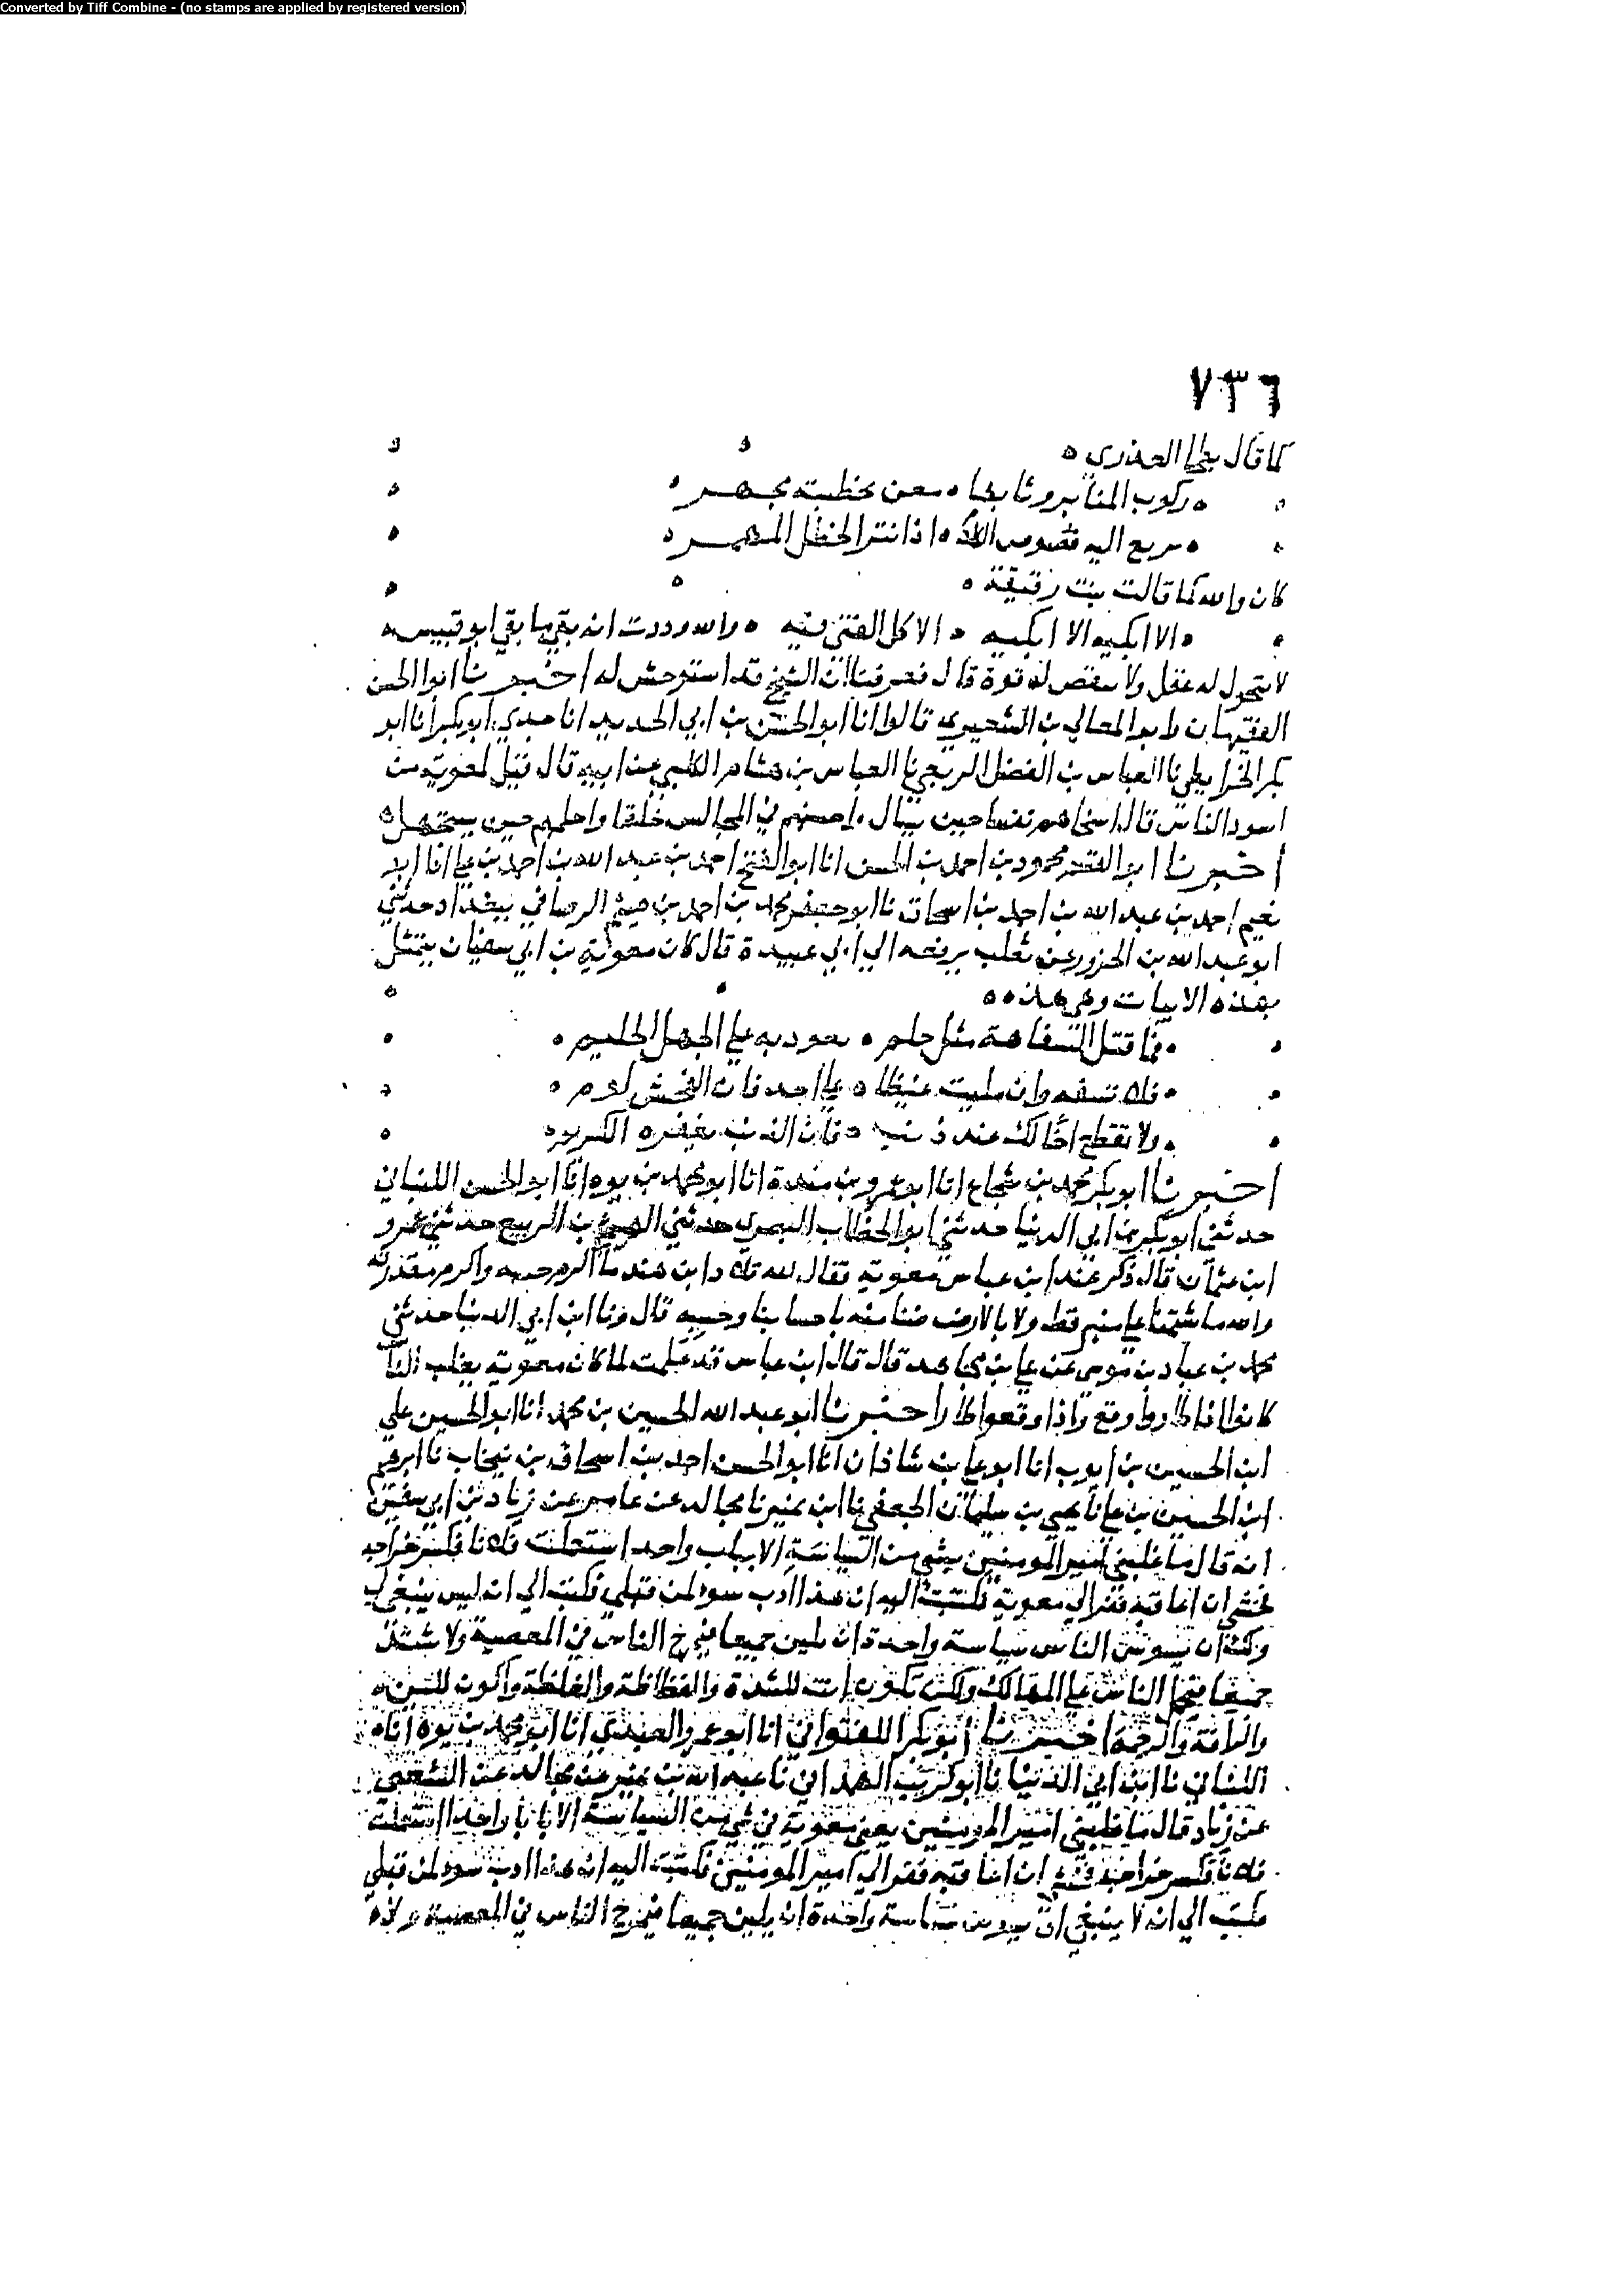 Converted by Tiff Combine - (no stamps are applied by registered version)
٧٣٦
كما قال بطحا العذري
ركوب المنابر وثابها معن بخطبته مجهر
سريع اليه فصوص الكلام اذا نثر الخطل المهمر
كان والله كما قالت بنت رقيقة
الا ابكيه الا ابكيه الا كل الفتى فيه والله وددت انه بقي ما بقي ابو قبيس
لا يتحول له عقل ولا ينقص له قوة قال فعرفنا ان الشيخ قد استوحش له اخبرنا ابوا الحسن
الفقيهان وابو المعالي بن الشعيري قالوا انا ابو الحسن بن ابي الحديد انا جدي ابو بكر انا ابو
بكر الخرايطي نا العباس بن الفضل الربعي نا العباس بن هشام الكلبي عن ابيه قال قيل لمعوية من
اسود الناس قال اسخاهم نفسا حين يسال واحسنهم في المجالس خلقا واحلمهم حين يستجهل
اخبرنا ابو محمود بن احمد بن الحسن انا ابو الفتح احمد بن عبد الله بن احمد بن علي انا ابو
نعيم احمد بن عبد الله بن احمد بن اسحاق نا ابو جعفر محمد بن احمد بن هيثم الرصافي ببغداد حدثني
ابو عبد الله بن الحزور عن ثعلب يرفعه الي ابي عبيدة قال كان معوية بن ابي سفيان يتمثل
بهذه الابيات وهي هذه
فما قتل السفاهة مثل حلم يعود به علي الجهل الحليم
فلا تسفه وان مليت غيظا علي احد فان الفحش لوم
ولا تقطع اخا لك عند ذنب فان الذنب يغفره الكريم
اخبرنا ابو بكر محمد بن شجاع انا ابو عمرو بن مندة انا ابو محمد بن يوه انا ابو الحسن اللنباني
حدثني ابو بكر بن ابي الدنيا حدثني ابو الخطاب البصري حدثني الهيثم بن الربيع حدثني عمرو
ابن عثمان قال ذكر عند ابن عباس معوية فقال لله تلاد ابن هند ما اكرم حسبه واكرم مقدرته
والله ما شتمنا علي منبر قط ولا بالارض ضنا منه باحسابنا وحسبه قال ونا ابن ابي الدنيا حدثني
محمد بن عباد بن موسي عن علي بن مجاهد قال قال ابن عباس قد علمت لما كان معوية يغلب الناس
كانوا اذا طاروا وقع واذا وقعوا طار اخبرنا ابو عبد الله الحسين بن محمد انا ابو الحسين علي
ابن الحسين بن ايوب انا ابو علي بن شاذان انا ابو الحسن احمد بن اسحاق بن نيخاب نا ابرهيم
ابن الحسين بن علي نا يحيي بن سليمان الجعفي نا ابن نمير نا مجالد عن عامر عن زياد بن ابي سفين
انه قال ما غلبني امير المومنين بشي من السياسة الا بباب واحد استعملت فلانا فكسر خراجه
فخشي ان اعاقبه ففر الي معوية فكتبت اليه ان هذا ادب سو لمن قبلي فكتب الي انه ليس ينبغي لي
ولك ان نسوس الناس سياسة واحدة ان نلين جميعا فيمرح الناس في المعصية ولا نشتد
جميعا فنحمل الناس علي المهالك ولكن تكون انت للشدة والفظاظة والغلظة واكون للين
والرافة والرحمة اخبرنا ابو بكر اللفتواني انا ابو عمرو العبدي انا ابو محمد بن يوه انا
اللنباني نا ابن ابي الدنيا نا ابو كريب الهمداني نا عبد الله بن نمير عن مجالد عن الشعبي
عن زياد قال ما غلبني امير المومنين يعني معوية في شي من السياسة الا بابا واحدا استعملت
فلانا فكسر خراجه فخشي ان اعاقبه ففر الي امير المومنين فكتبت اليه ان هذا ادب سو لمن قبلي
فكتب الي انه لا ينبغي ان نسوس سياسة واحدة ان نلين جميعا فيمرح الناس في المعصية ولا